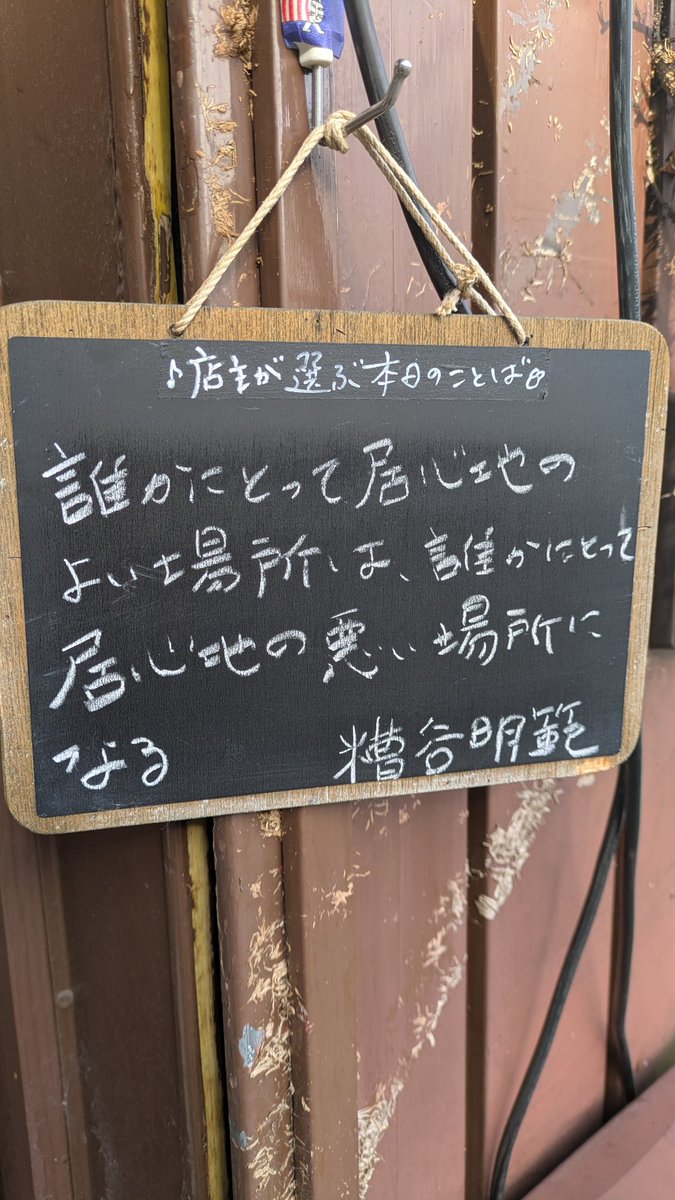 ♪店主が選ぶ本日のことば♪
誰かにとって居心地の
よい場所は、誰かにとって
居心地の悪い場所に
なる 糟谷明範